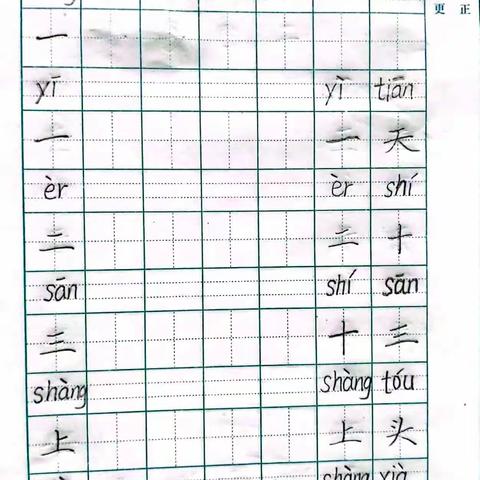 更 正
一
yī yì tiān
一 一 天
èr èr shí
二 二 十
sān shí sān
三 十 三
shàng shàng tóu
上 上 头
shàng xià